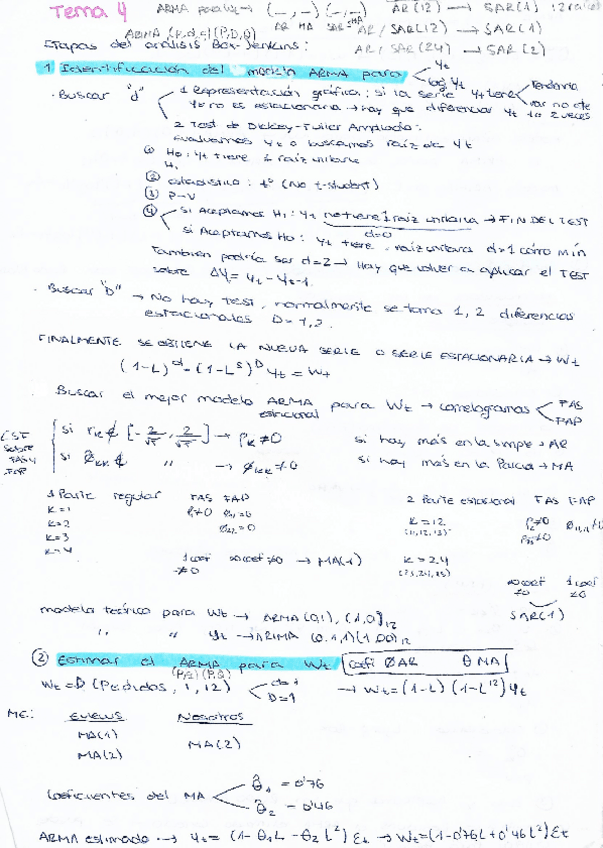 Tema 4
ARMA para Wt → (_,_) (_,_) AR(12) → SAR(1)
AR MA SAR SMA
ARIMA (P,d,q)(P,D,Q) AR/SAR(12) → SAR(1)
Etapas del análisis Box-Jenkins: AR/SAR(24) → SAR(2)
1 Identificación del modelo ARMA para yt
log yt
· Buscar "d" 1 Representación gráfica: si la serie yt tiene Tendencia
yt no es estacionaria → hay que diferenciar yt 1 o 2 veces
2 Test de Dickey-Fuller Ampliado:
evaluamos yt o buscamos raíz de yt
① H0: yt tiene 1 raíz unitaria
H1
② estadístico: t (No t-student)
③ P-V
④ si Aceptamos H1: yt no tiene 1 raíz unitaria → FIN DEL TEST
d=0
si Aceptamos H0: yt tiene raíz unitaria d=1 como mín
También podría ser d=2 → Hay que volver a aplicar el TEST
sobre ΔY = yt - yt-1
· Buscar "D" → No hay test, normalmente se toma 1, 2 diferencias
estacionales D=1,2.
FINALMENTE SE OBTIENE LA NUEVA SERIE O SERIE ESTACIONARIA → Wt
(1-L)^d · (1-L^S)^D yt = Wt
Buscar el mejor modelo ARMA para Wt → correlogramas FAS
FAP
estacional
si rk ∉ [-2/√T, 2/√T] → ρk ≠ 0 si hay más en la simple → AR
si φkk ∉ " → φkk ≠ 0 si hay más en la Parcial → MA
1 Parte regular FAS FAP 2 Parte estacional FAS FAP
k=1
k=2 k=12
(11,12,13)
k=3
k=4 1 coef ≠0 → MA(1) k=24
(23,24,25)
≠0 coef 1 coef
≠0 ≠0
SAR(1)
modelo teórico para Wt → ARMA (0,1), (1,0)12
" " yt → ARIMA (0,1,1)(1,1,0)12
② Estimar el ARMA para Wt Coefi Ø AR θ MA
(P,Q) (P,Q)
Wt = D (Pedidos, 1, 12) d=1
D=1 → Wt = (1-L) (1-L^12) yt
ME: EVIEWS Nosotros
MA(1)
MA(2) MA(2)
Coeficientes del MA θ̂1 = 0'76
θ̂2 - 0'46
ARMA estimado → yt = (1-θ1L-θ2L²) εt → Wt = (1-0'76L+0'46L²) εt